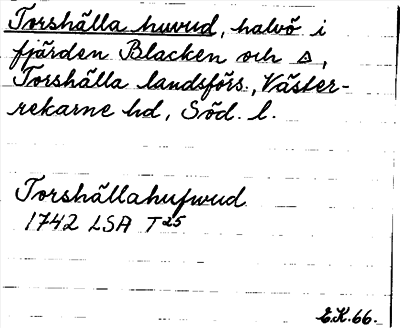 Torshälla huvud, halvö i
fjärden Blacken och △,
Torshälla landsförs., Väster-
rekarne hd, Söd. l.
Torshällahufwud
1742 LSA T25
E.K. 66.